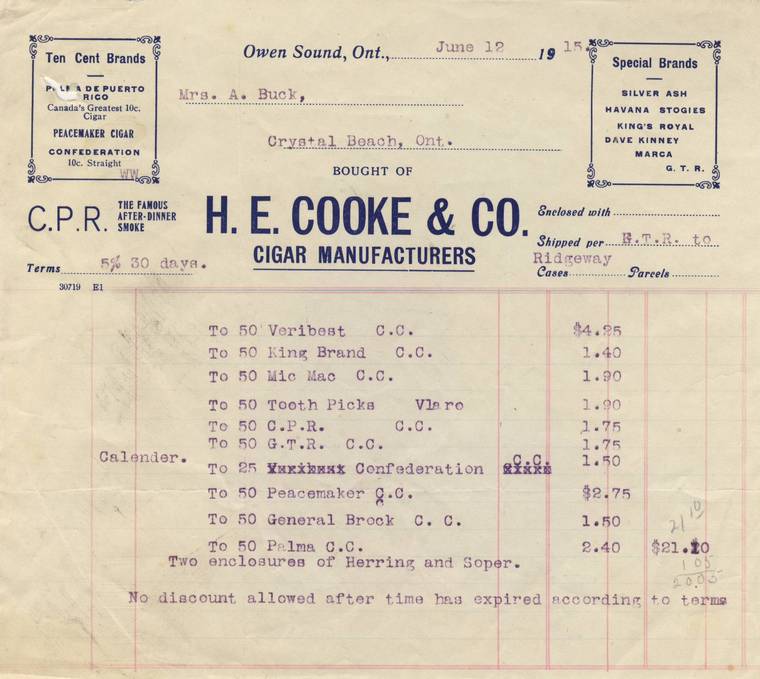 Ten Cent Brands
PALMA DE PUERTO
RICO
Canada's Greatest 10c.
Cigar
PEACEMAKER CIGAR
CONFEDERATION
10c. Straight
WW
Owen Sound, Ont., June 12 1915.
Mrs. A. Buck,
Crystal Beach, Ont.
BOUGHT OF
Special Brands
SILVER ASH
HAVANA STOGIES
KING'S ROYAL
DAVE KINNEY
MARCA
G. T. R.
C.P.R. THE FAMOUS
AFTER-DINNER
SMOKE
H. E. COOKE & CO.
CIGAR MANUFACTURERS
Enclosed with
Shipped per G.T.R. to
Ridgeway
Cases Parcels
Terms 5% 30 days.
30719 E1
To 50 Veribest C.C. $4.25
To 50 King Brand C.C. 1.40
To 50 Mic Mac C.C. 1.90
To 50 Tooth Picks Vlaro 1.90
To 50 C.P.R. C.C. 1.75
To 50 G.T.R. C.C. 1.75
Calender.
To 25 Confederation C.C. 1.50
To 50 Peacemaker C.C. $2.75
To 50 General Brock C. C. 1.50
To 50 Palma C.C. 2.40 $21.10
Two enclosures of Herring and Soper.
21 10
1 05
20.05
No discount allowed after time has expired according to terms